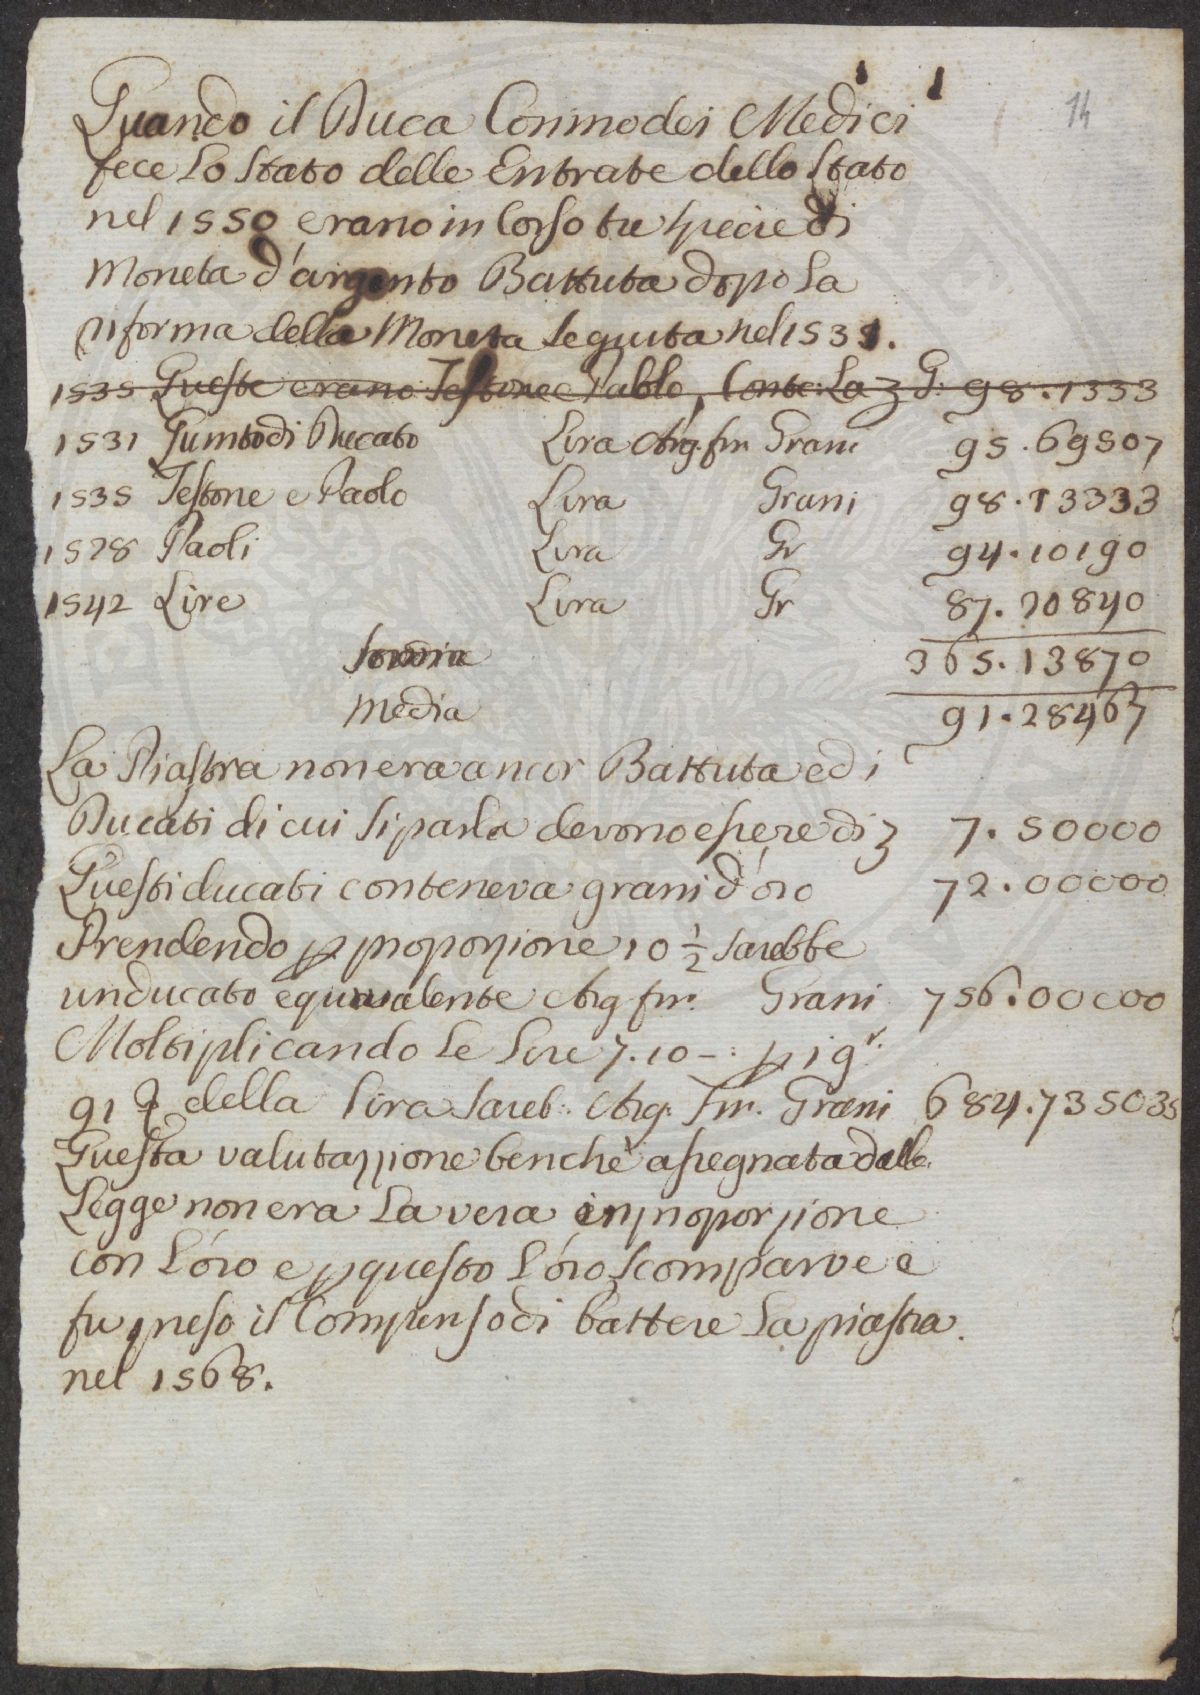 14
Quando il Duca Cosimo dei Medici
fece Lo Stato delle Entrate dello Stato
nel 1550 erano in Corso tre specie di
Moneta d'argento Battuta dopo La
riforma della Moneta Seguita nel 1531.
1535 Queste erano Testone e Pablo, Conte: La ʒ G: 98.1333
1531 Quinto di Ducato Lira Arg. fin Grani 95.69507
1535 Testone e Paolo Lira Grani 98.13333
1528 Paoli Lira Gr 94.10190
1542 Lire Lira Gr 87.20840
365.13870
Media 91.28467
La Piastra non era ancor Battuta ed i
Ducati di cui si parla devono essere di ʒ 7.50000
Questi ducati conteneva grani d'oro 72.00000
Prendendo p proporzione 10 1/2 Sarebbe
un ducato equivalente Arg fin: Grani 756.00000
Moltiplicando Le Lire 7.10 -: p i gr.
91 della Lira Sareb: Arg. fin. Grani 684.735035
Questa valutazzione benchè assegnata dalle
Legge non era La vera in proporzione
con L'oro e p questo L'oro Scomparve e
fu preso il Compenso di battere La piastra
nel 1568.